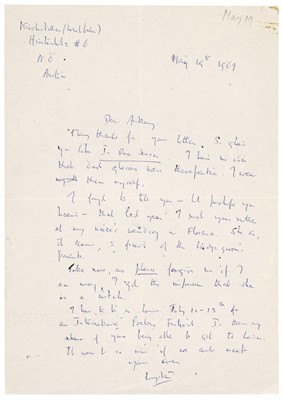 May 19
Hinterholz #6
N.Ö.
Austria
May 19th 1969
Dear Anthony
Many thanks for your letter. So glad
you like
that dark glasses were therapeutic. I wear
them myself.
I forgot to tell you – but perhaps you
heard – that last year I met your mother
at my niece's wedding in Florence. She is,
it seems, a friend of the bridegroom's
parents.
Take care, and please forgive me if I
am wrong, I got the impression that she
is a witch.
I have to be in London July 10-13th for
an International Poetry Festival. Is there any
chance of your being able to get to London
It would be so nice if we could meet
yours ever
Wystan